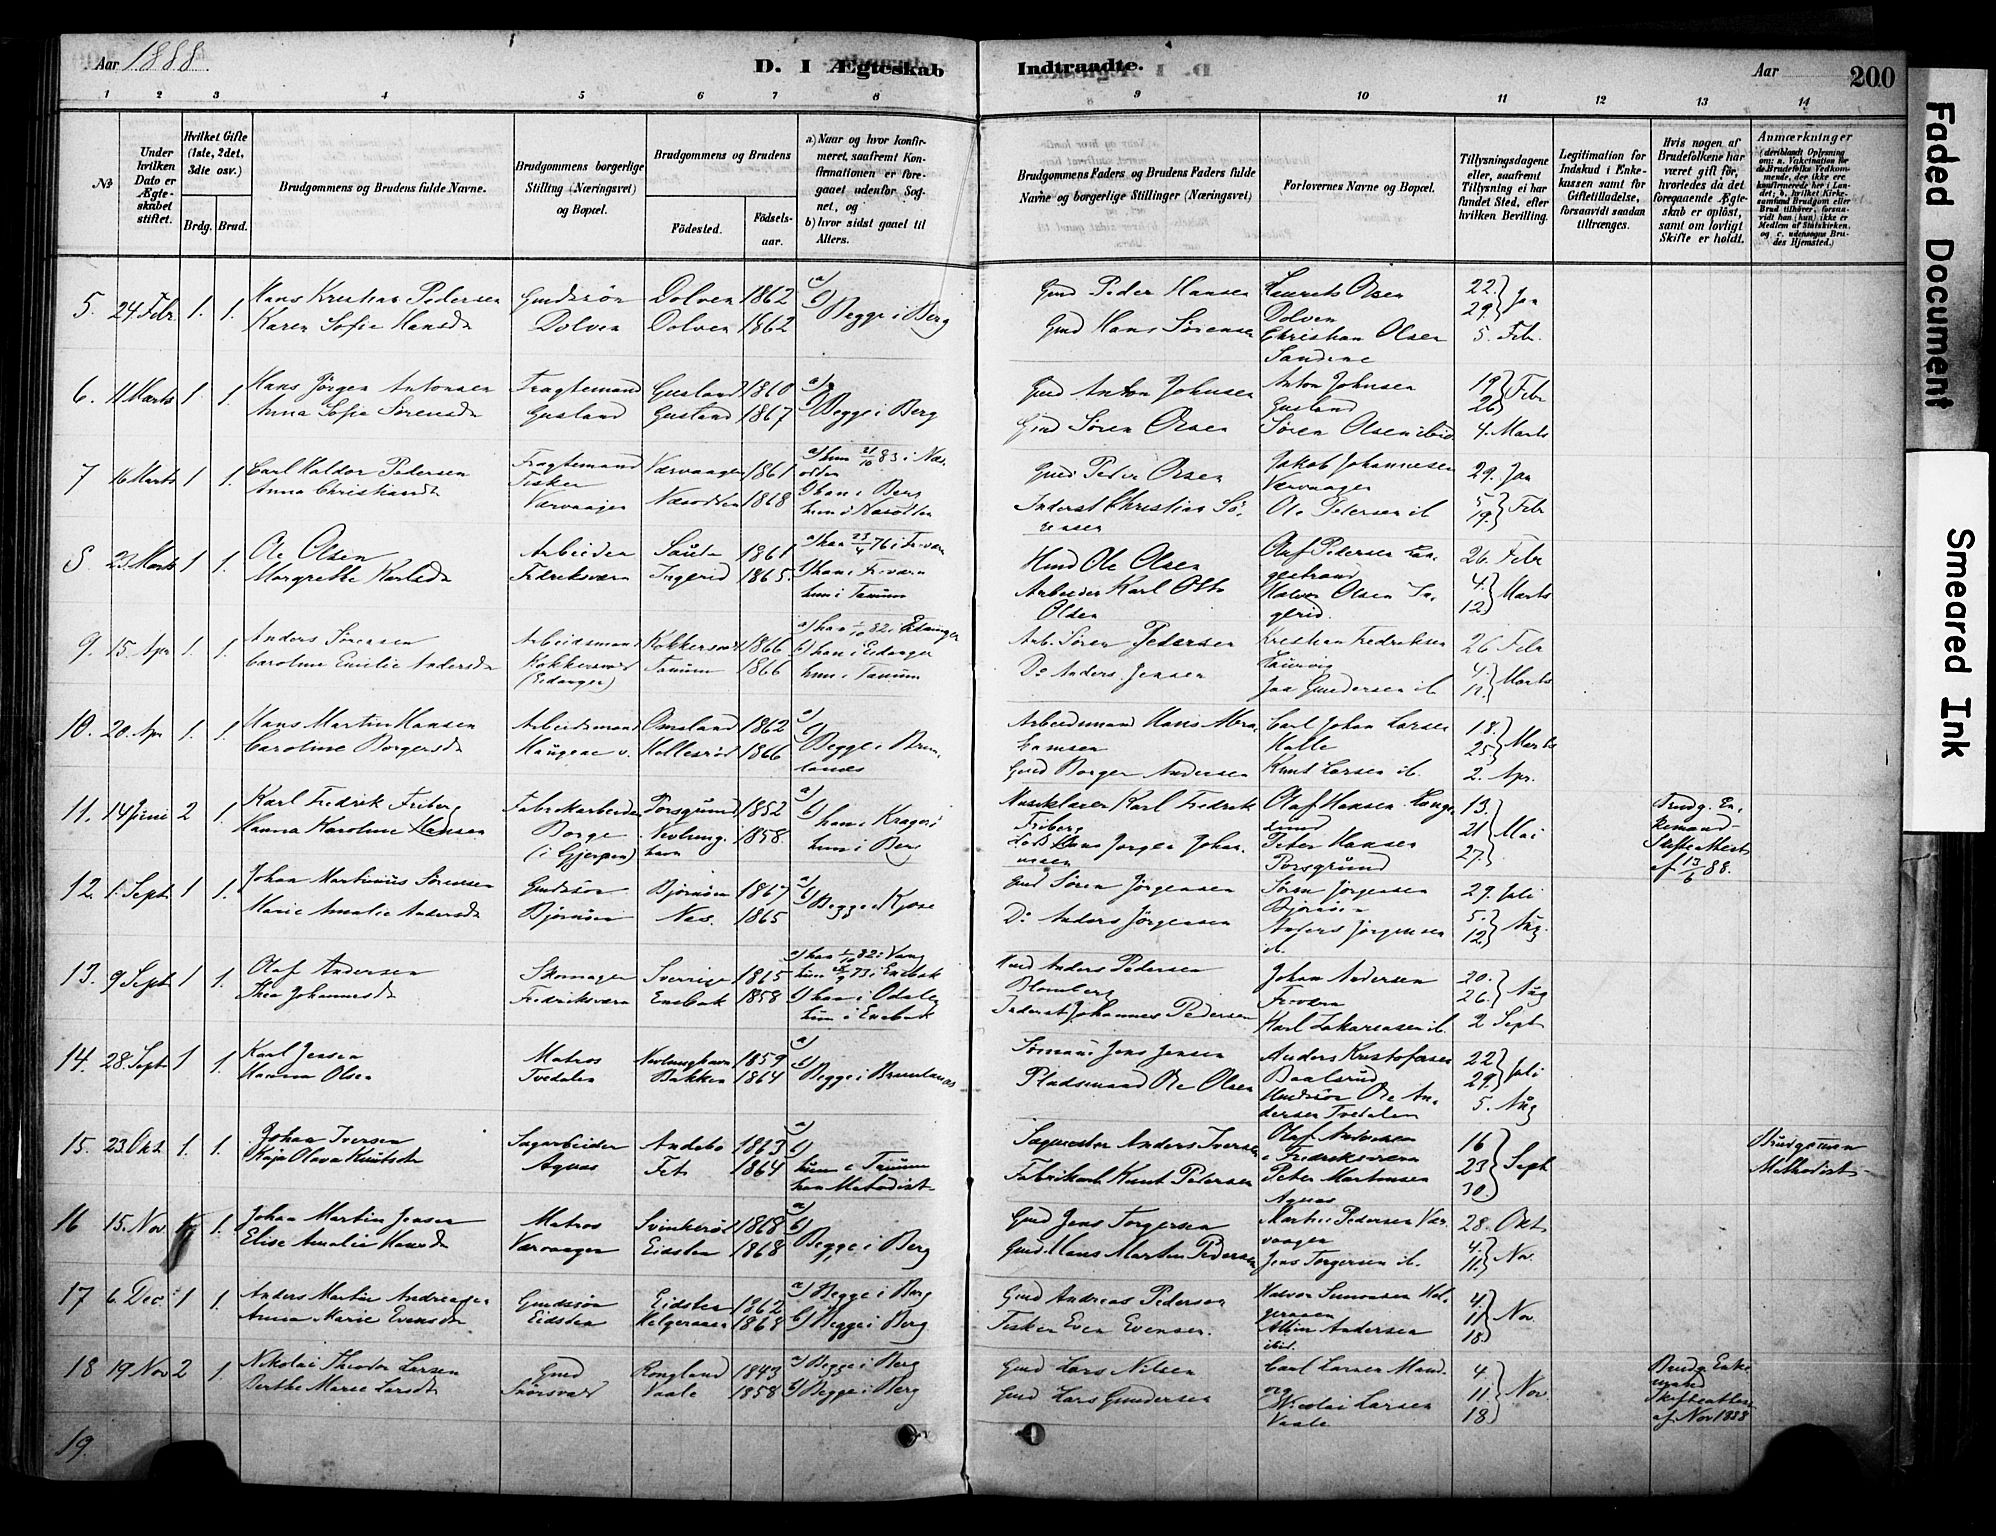 Aar 1888.
D. I Ægteskab Indtraadte.
Aar 200
1 2 3 4 5 6 7 8 9 10 11 12 13 14
No
Under hvilken Dato er Ægteskabet stiftet.
Hvilket Gifte (1ste, 2det, 3die osv.)
Brdg. Brud.
Brudgommens og Brudens fulde Navne.
Brudgommens borgerlige Stilling (Næringsvei) og Bopæl.
Brudgommens og Brudens
Fødested. Fødselsaar.
a) Naar og hvor konfirmeret, saafremt Konfirmationen er foregaaet udenfor Sognet, og
b) hvor sidst gaaet til Alters.
Brudgommens Faders og Brudens Faders fulde Navne og borgerlige Stillinger (Næringsvei)
Forlovernes Navne og Bopæl.
Tillysningsdagene eller, saafremt Tillysning ei har fundet Sted, efter hvilken Bevilling.
Legitimation for Indskud i Enkekassen samt for Giftetilladelse, forsaavidt saadan tiltrænges.
Hvis nogen af Brudefolkene har været gift før, hvorledes da det foregaaende Ægteskab er opløst, samt om lovligt Skifte er holdt.
Anmærkninger (deriblandt Oplysning om: a. Vakcination for de Brudefolks Vedkommende, der ikke ere konfirmerede her i Landet; b. hvilket Kirkesamfund Brudgom eller Brud tilhører, forsaavidt han (hun) ikke er Medlem af Statskirken, og c. udensogns Brudes Hjemsted.)
5. 24 Febr 1. 1. Hans Kristian Pedersen Gmdssøn Dolven 1862 a) b) Begge i Berg Gmd Peder Hansen Laurits Olsen Dolven 22. 29. Jan
Karen Sofie Hansdr Dolven Dolven 1862 Gmd Hans Sørensen Christian Olsen Sandene 5. Febr.
6. 11 Marts 1. 1. Hans Jørgen Antonsen Fragtemand Gusland 1860 a) b) Begge i Berg Gmd Anton Johnsen Anton Johnsen Gusland 19 26 Febr
Anna Sofie Sørensdr Gusland Gusland 1867 Gmd Søren Olsen Søren Olsen ibid 4. Marts
7 16 Marts 1 1. Carl Haldor Pedersen Fragtemand Værvaagen 1861 a) hun 21/10 83 i Næsodden Gmd Peder Olsen Jakob Johannesen Værvaagen 29. Jan
Anna Christiansdr Fisker Værvaagen Næsodden 1868 b) han i Berg hun i Næsodden Inderst Christian Sørensen Ole Petersen ib 5 19. Febr
8. 23 Marts 1 1. Ole Olsen Arbeider 1861 a) han 23/4 76 i Fr.værn Hmd Ole Olsen Olaf Pedersen Langestrand 26. Febr
Margrethe Karlsdr Fredriksværn Ingerid 1865. b) han i Fr.værn hun i Tanum Arbeider Karl Otto Olsen Halvor Olsen Ingerid. 4. 12 Marts
9. 15. Apr 1. 1. Anders Sørensen Arbeidsmand Kokkersvold 1866 a) han 1/10 82 i Eidanger Arb. Søren Pedersen Kristian Fredriksen Laurvig 26 Febr
Caroline Emilie Andersdr Kokkersvold (Eidanger) Tanum 1866 b) han i Eidanger hun i Tanum Do Anders Jensen Gundersen ib 4. 11. Marts
10. 20. Apr 1. 1. Hans Martin Hansen Arbeidsmand Omsland 1862 a) b) Begge i Brunlanes Arbeidsmand Hans Abrahamsen Carl Johan Larsen Halle 18. 25 Marts
Caroline Borgersdr Haugene v. Hallesrød 1866 Gmd Borger Andersen Knut Larsen ib. 2. Apr.
11. 14 Juni 2 1. Karl Fredrik Friberg Fabrikarbeider Porsgrund 1852 a) b) han i Kragerø Musiklærer Karl Fredrik Friberg Olaf Hansen 13. 21 27. Mai Brudg. Enkemand Skifteattest af 13/6 88.
Hanna Karoline Hansen Borge (i Gjerpen) Nevlunghavn 1858. hun i Berg Lods Hans Jørgen Johannesen Peter Hansen Porsgrund
12. 1. Sept 1 1. Johan Martinius Sørensen Gmdssøn Bjørnøen 1867 a) b) Begge i Kjose Gmd Søren Jørgensen Søren Jørgensen Bjørnøen 29. Juli
Marie Amalie Andersdr Bjørnøen Nes. 1865 Do Anders Jørgensen Anders Jørgensen ib. 5. 12 Aug.
13. 9 Sept 1 1. Olaf Andersen Skomager Sverrige 1865 a) han 1/10 82 i Vang hun 73 i Enebak Hmd Anders Pedersen Blomberg Johan Andersen Fr.værn 20. 26. Aug
Thea Johannesdr Fredriksværn Enebak 1858 b) han i Odalen hun i Enebak Inderst Johannes Pedersen Karl Zakariasen ib. 2 Sept
14. 28. Sept 1 1. Karl Jensen Matros Nevlunghavn 1859 a) b) Begge i Brunlanes Sømand Jens Jensen Anders Kristofersen Baalsrud 22 29. Juli
Hanna Olsen Tvedalen Bakken 1864 Pladsmand Ole Olsen Gmdssøn Ole Andersen Tvedalen 5. Aug
15. 23. Okt. 1. 1. Johan Iversen Sagarbeider Andebo 1863 a) b) hun i Tanum Sagmester Anders Iversen Olaf Andersen i Fredriksværn 16 23 30. Sept Brudgommen Methodist
Kaja Olava Knutsdr Agnes Fet 1864 han Metodist Fabrikarb Knut Petersen Peter Martinsen Agnes
16 15. Nov 1. Johan Martin Jensen Matros Svinkerød 1868 a) b) Begge i Berg Gmd Jens Torgersen Martin Pedersen Værvaagen 28. Okt
Elise Amalie Hansdr Værvaagen Eidsten 1868 Gmd Hans Martin Pedersen Jens Torgersen ib. 4. 11. Nov.
17 6. Dec. 1 1. Anders Martin Andreassen Gmdssøn Eidsten 1862 a) Begge i Berg Gmd Andreas Pedersen Halvor Simonsen Helgeraaen 4. 11 18. Nov.
Anna Marie Evensdr Eidsten Helgeraaen 1868 b) Begge i Berg. Fisker Even Evensen. Andersen ibid.
18 19 Nov 2 1. Nikolai Theodor Larsen Gmd Rongland 1843 a) Begge i Berg Gmd Lars Nilsen Carl Larsen Manvig 4. 11. 18 Nov. Brudg. Enkemand Skifteattest af Nov 1888
Berthe Marie Larsdr Vaale 1858 b) Begge i Berg Gmd Lars Gundersen Nicolai Larsen Vaale
19.
Faded Document
Smeared Ink